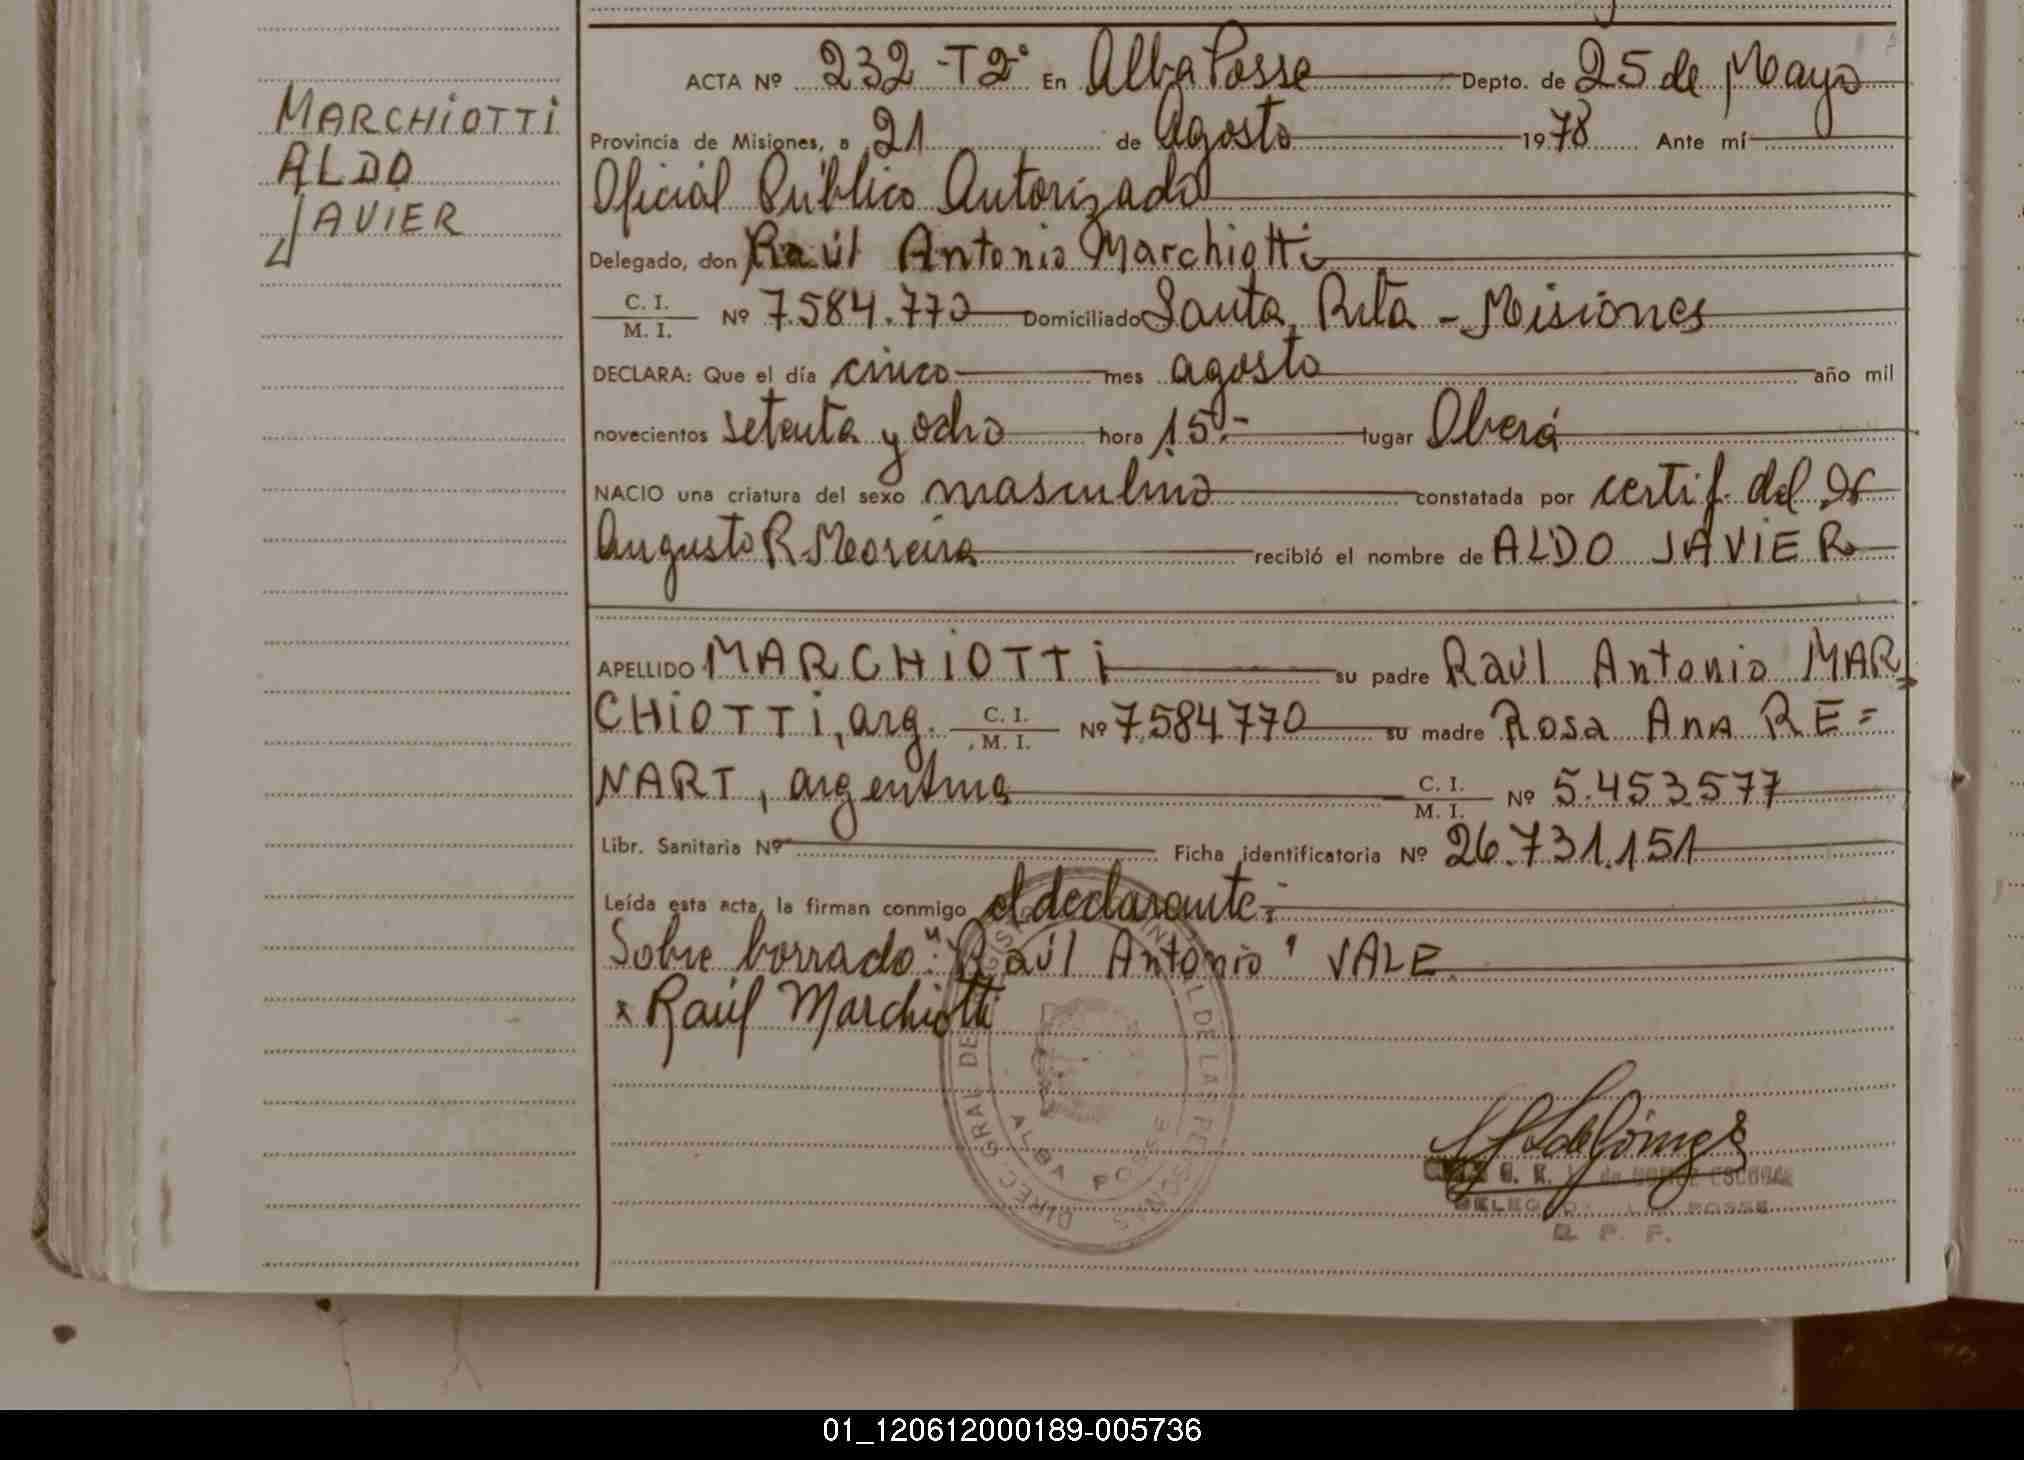 MARCHIOTTI
ALDO
JAVIER
ACTA Nº 232 -T2º En Alba Posse Depto. de 25 de Mayo
Provincia de Misiones, a 21 de Agosto 1978 Ante mí
Oficial Público Autorizado
Delegado, don Raúl Antonio Marchiotti
C. I.
M. I. Nº 7.584.770 Domiciliado Santa Rita - Misiones
DECLARA: Que el día cinco mes agosto año mil
novecientos setenta y ocho hora 15.- lugar Oberá
NACIO una criatura del sexo masculino constatada por certif. del Dr
Augusto R Moreira recibió el nombre de ALDO JAVIER
APELLIDO MARCHIOTTI su padre Raúl Antonio MAR
CHIOTTI, arg. C. I.
M. I. Nº 7.584770 su madre Rosa Ana RE=
NART, argentina C. I.
M. I. Nº 5.453577
Libr. Sanitaria Nº Ficha identificatoria Nº 26.731.151
Leída esta acta, la firman conmigo el declarante.-
Sobre borrado: "Raúl Antonio" VALE
x Raúl Marchiotti
DIREC. GRAL. DE DE LAS PERSONAS
ALBA POSSE
POSSE
01_120612000189-005736